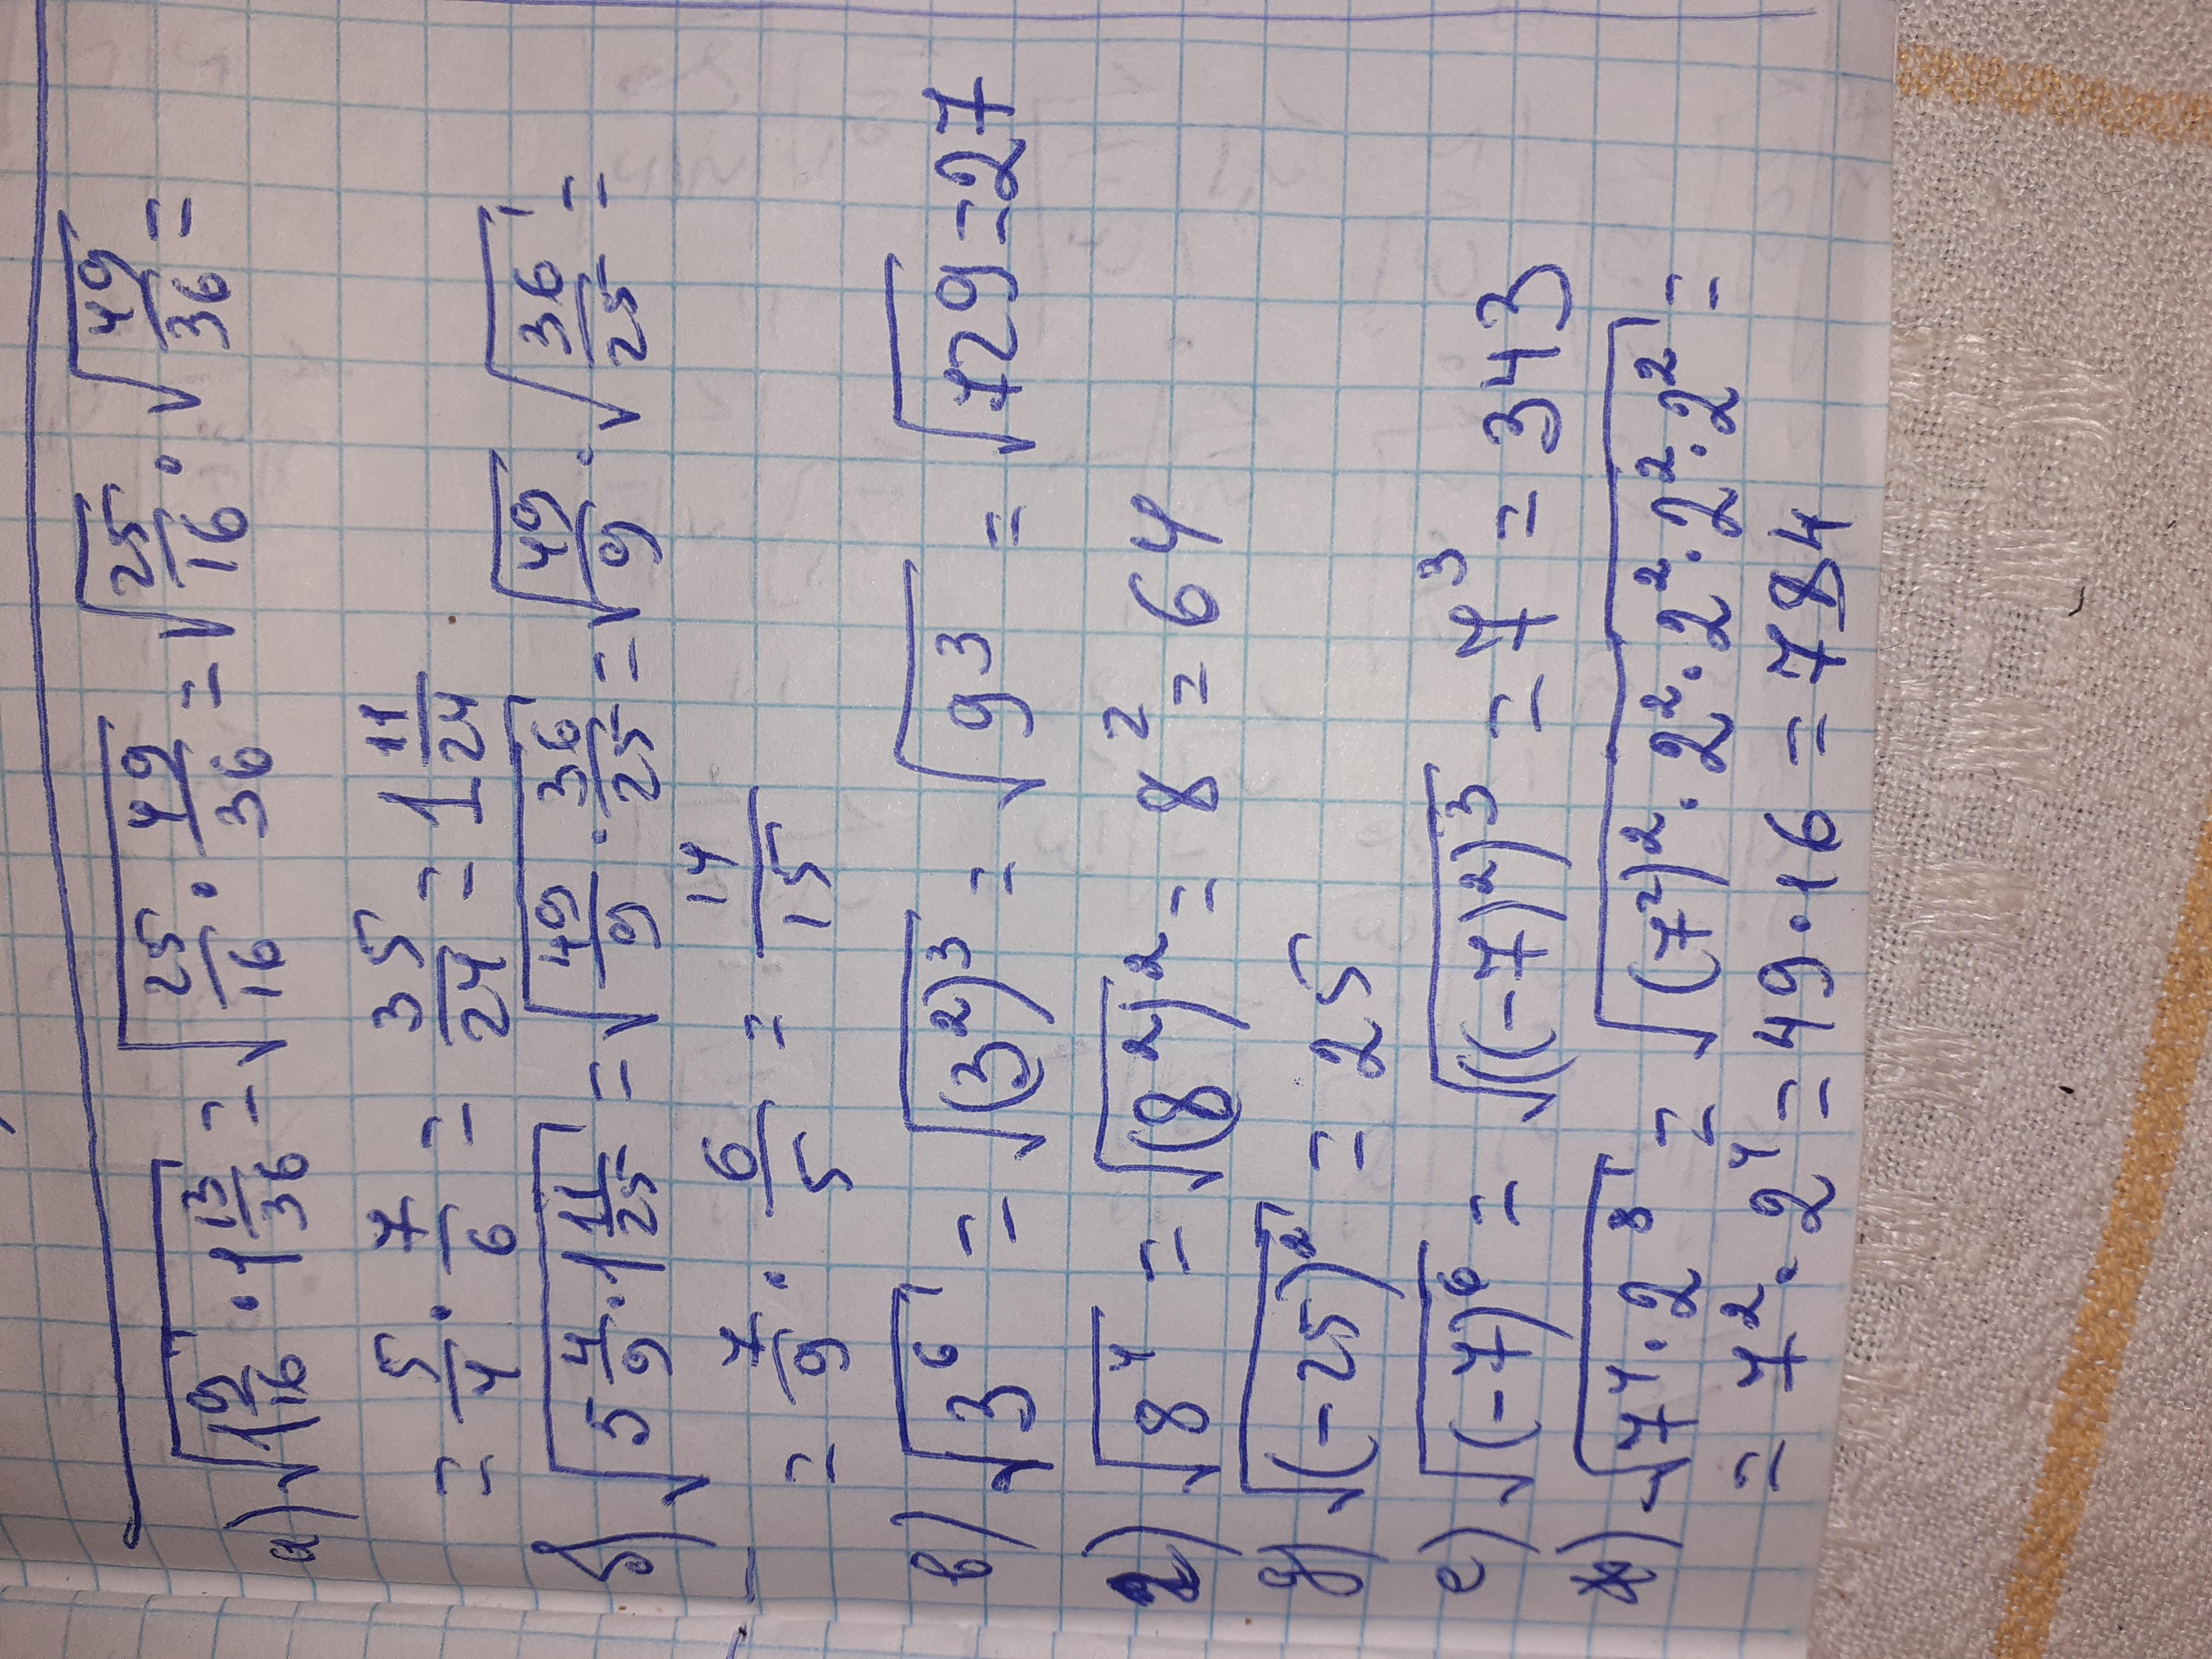 а) √(1 9/16 · 1 13/36) = √(25/16 · 49/36) = √(25/16) · √(49/36) =
= 5/4 · 7/6 = 35/24 = 1 11/24
б) √(5 4/9 · 1 11/25) = √(49/9 · 36/25) = √(49/9) · √(36/25) =
= 7/9 · 6/5 = 14/15
в) √(3⁶) = √((3²)³) = √(9³) = √729 = 27
г) √(8⁴) = √((8²)²) = 8² = 64
д) √((-25)²) = 25
е) √((-7)⁶) = √(((-7)²)³) = 7³ = 343
ж) √(7⁴ · 2⁸) = √((7²)² · 2² · 2² · 2² · 2²) =
= 7² · 2⁴ = 49 · 16 = 784